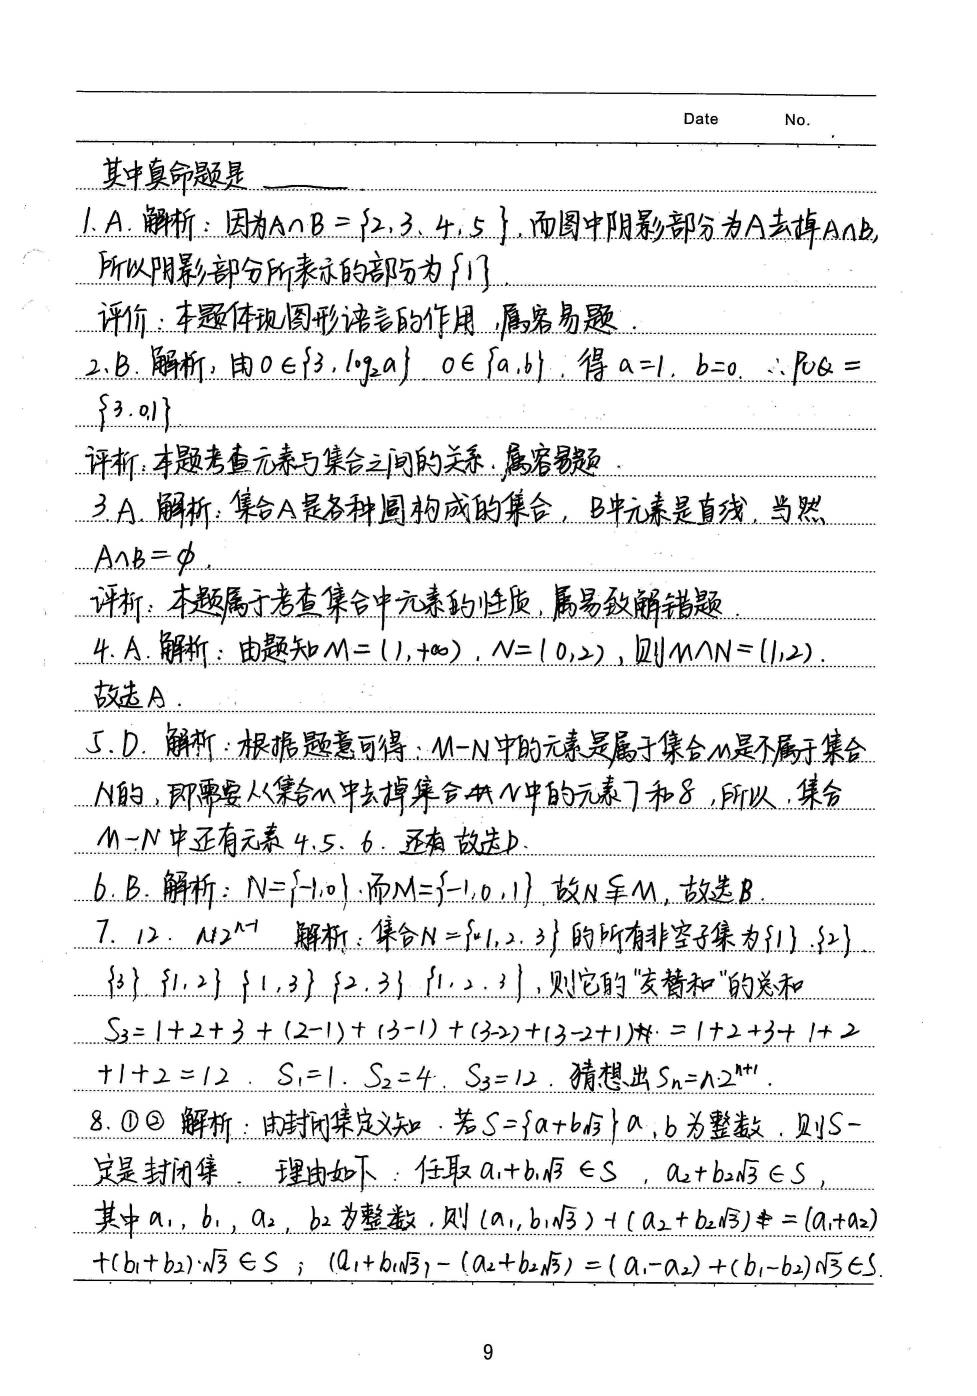 Date No.
其中真命题是 ______.
1.A.解析：因为A∩B={2,3、4,5},而图中阴影部分为A去掉A∩B,
所以阴影部分所表示的部分为{1}.
评价：本题体现图形语言的作用,属容易题.
2、B.解析,由0∈{3,log₂a} 0∈{a,b},得a=1, b=0. ∴P∪Q=
{3.0,1}
评析：本题考查元素与集合之间的关系.属容易题.
3.A.解析：集合A是各种圆构成的集合，B中元素是直线,当然
A∩B=∅.
评析：本题属于考查集合中元素的性质,属易致解错题.
4.A.解析：由题知M=(1,+∞),N=(0,2),则M∩N=(1,2).
故选A.
5.D.解析：根据题意可得：M-N中的元素是属于集合M是不属于集合
N的,即需要从集合M中去掉集合N中的元素7和8,所以,集合
M-N中还有元素4.5、6. 还有 故选D.
6.B.解析：N={-1,0}.而M={-1,0,1},故N⫋M,故选B.
7. 12. n2ⁿ⁻¹ 解析：集合N={1,2.3}的所有非空子集为{1}.{2}.
{3}.{1,2}{1,3}{2.3}{1.2.3},则它的"交替和"的总和
S₃=1+2+3+(2-1)+(3-1)+(3-2)+(3-2+1)=1+2+3+1+2
+1+2=12. S₁=1. S₂=4. S₃=12.猜想出Sₙ=n2ⁿ⁺¹.
8.①②解析：由封闭集定义知.若S={a+b√3}a,b为整数.则S一
定是封闭集. 理由如下：任取a₁+b₁√3∈S ,a₂+b₂√3∈S,
其中a₁,b₁,a₂,b₂为整数.则(a₁,b₁√3)+(a₂+b₂√3)=(a₁+a₂)
+(b₁+b₂)·√3∈S；(a₁+b₁√3)-(a₂+b₂√3)=(a₁-a₂)+(b₁-b₂)√3∈S.
9